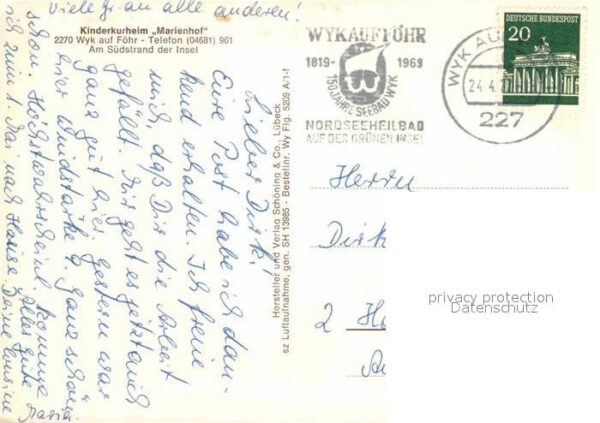 Viele Gr. an alle anderen!
Kinderkurheim „Marienhof"
2270 Wyk auf Föhr - Telefon (04681) 981
Am Südstrand der Insel
Lieber Dirk!
Eure Post habe ich dan-
kend erhalten. Ich freue
mich, daß Dir die Arbeit
gefällt. Mir geht es jetzt auch
ganz gut hier, gestern war
hier Windstärke 9. Ganz schön
schon. Höchstwahrscheinl. komme
ich zum 1. Mai nach Hause. Alles Gute
Deine Cousine
Maria.
Hersteller und Verlag Schöning & Co., Lübeck
sz Luftaufnahme, gen. SH 13985 - Bestellnr. Wy Fig. 5209 A/1-f
WYK AUF FÖHR
1819- 1969
150 JAHRE SEEBAD WYK
NORDSEEHEILBAD
AUF DER GRÜNEN INSEL
WYK AU
24.4.
227
DEUTSCHE BUNDESPOST
20
Herrn
Dirk
2 H
privacy protection
Datenschutz